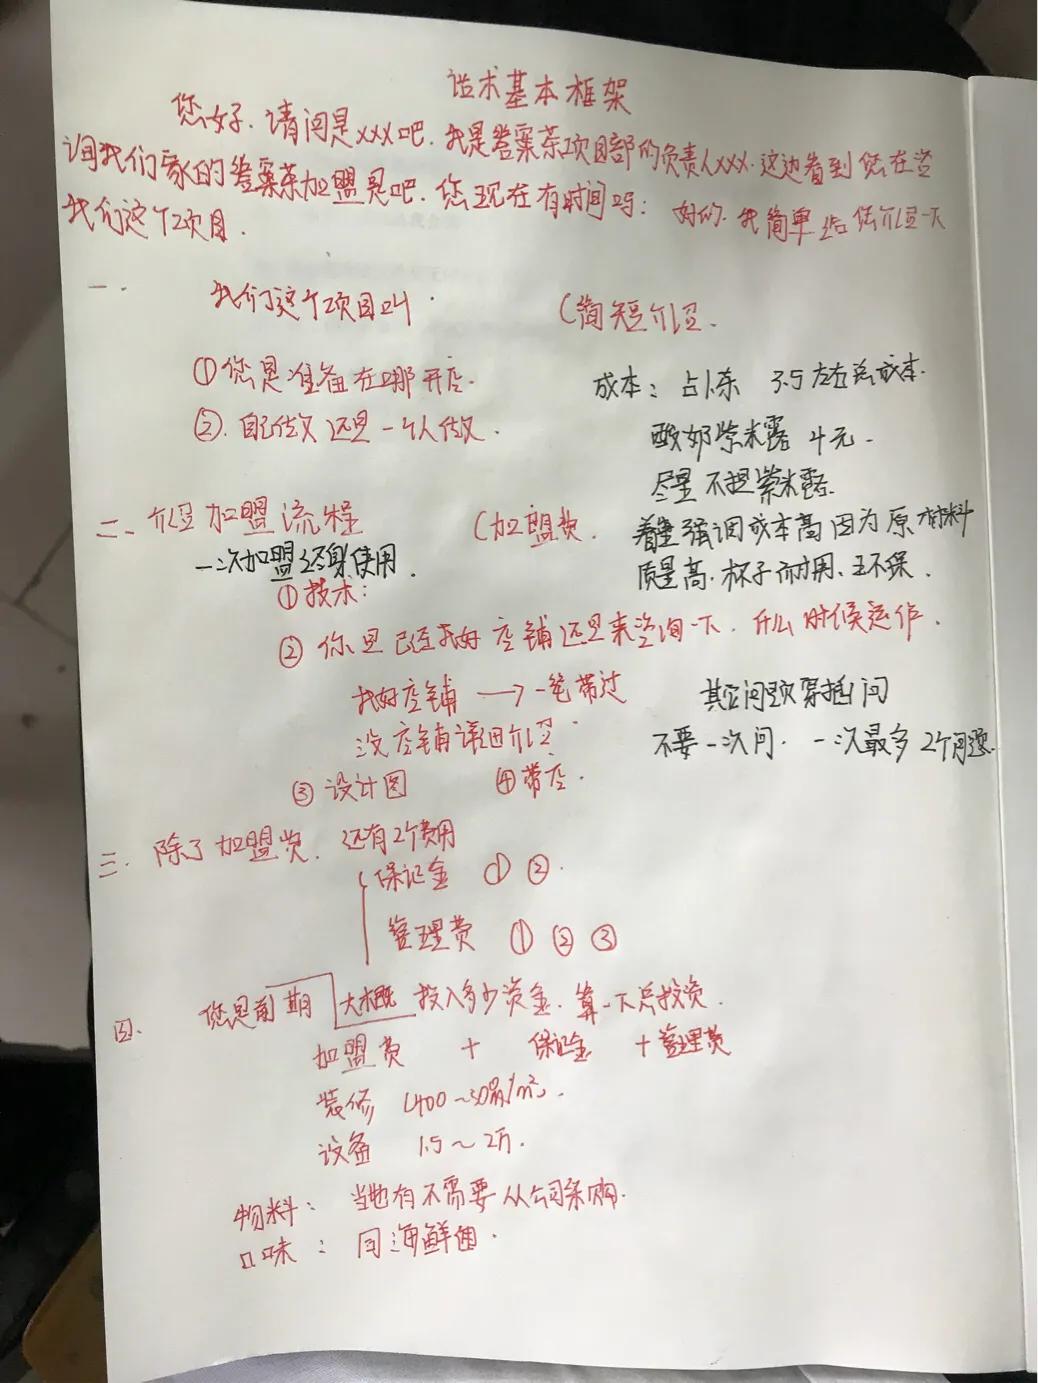 话术基本框架
您好.请问是xxx吧.我是答案茶项目部的负责人xxx.这边看到您在咨
询我们家的答案茶加盟是吧.您现在有时间吗:好的.我简单给您介绍一下
我们这个项目.
一. 我们这个项目叫. (简短介绍.
①您是准备在哪开店.
成本: 占卜茶 3.5左右总成本.
②.自己做还是一个人做.
酸奶紫米露 4元.
尽量不提紫米露.
二、介绍加盟流程 (加盟费.
着重强调成本高因为原材料
一次加盟终身使用.
质量高.杯子耐用、环保.
①技术:
②你是已经找好店铺还是来咨询一下.什么时候运作.
找好店铺→一笔带过
其它问题穿插问
没店铺详细介绍
不要一次问.一次最多2个问题.
③设计图 ④带店.
三.除了加盟费.还有2个费用
保证金 ① ②.
管理费 ① ② ③
四.您是前期大概投入多少资金.算一下总投资.
加盟费 + 保证金 +管理费
装修 (400~ /m².
设备 1.5~2万.
物料: 当地有不需要从公司采购.
口味: 同海鲜